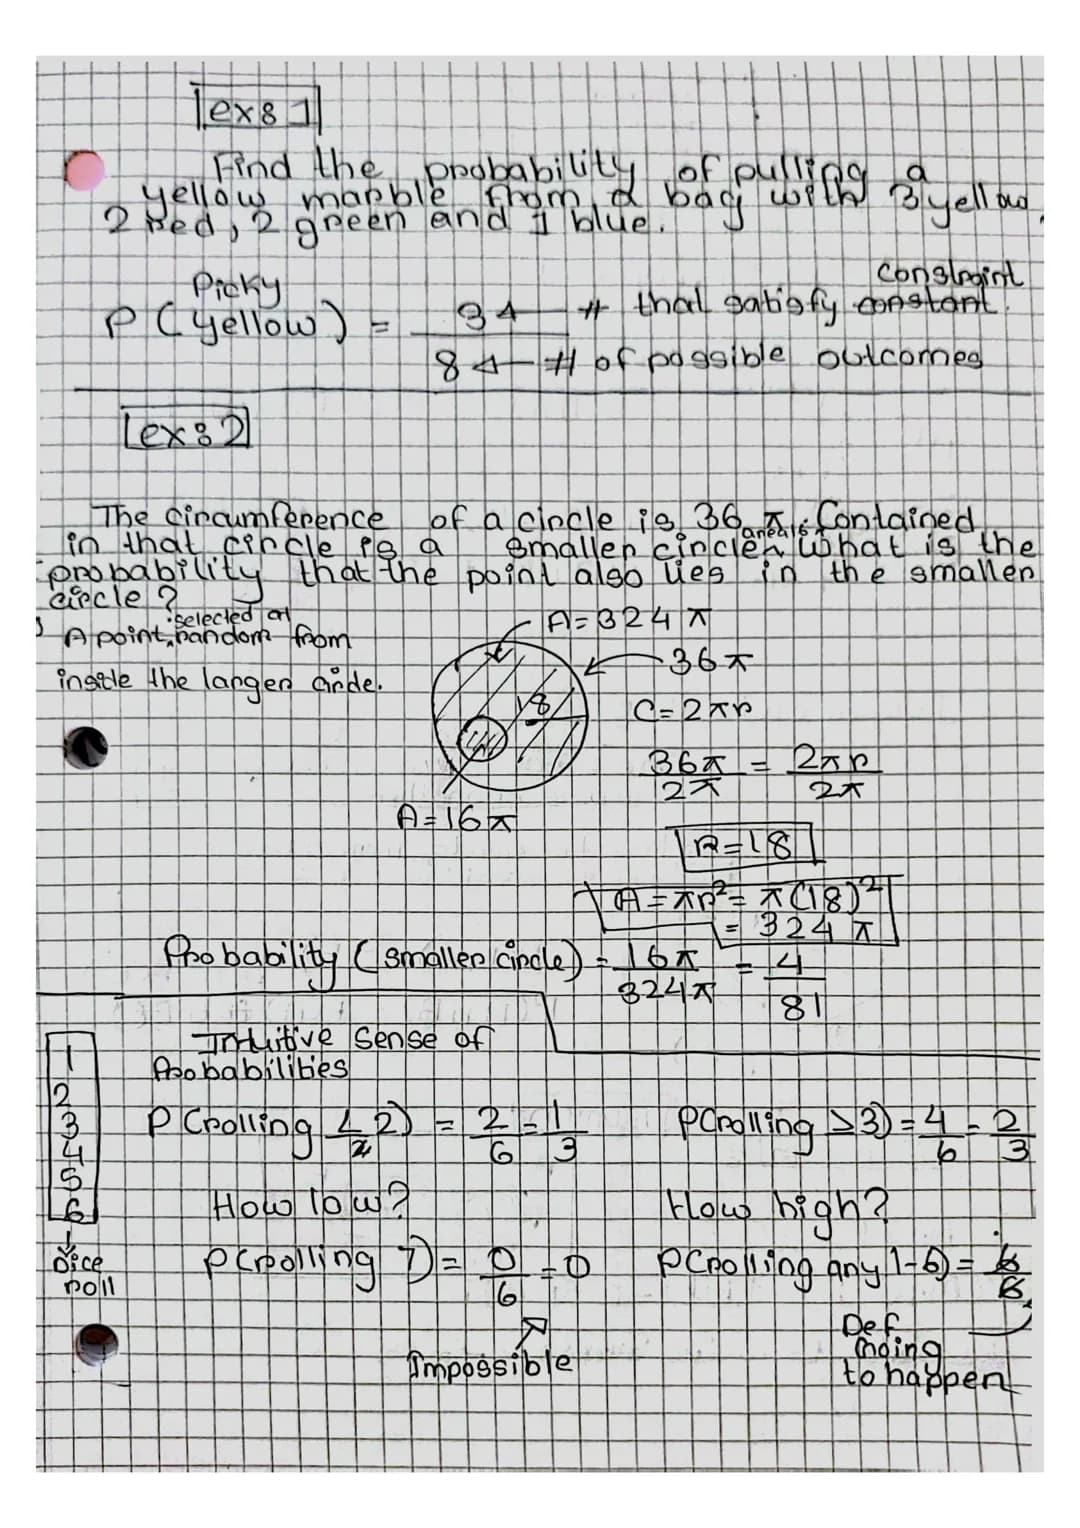 ex: 1
Find the probability of pulling a
yellow marble from a bag with 3 yellow
2 red, 2 green and 1 blue.
Picky constraint
P(yellow) = 3 ← # that satisfy constant.
8 ← # of possible outcomes
ex: 2
The circumference of a circle is 36 π. Contained
in that circle is a smaller circle area 16π. What is the
probability that the point also lies in the smaller
circle?
A point selected at random from
inside the larger circle.
A = 324 π
36 π
18
C = 2πr
36π/2π = 2πr/2π
A = 16π
R = 18
A = πr² = π(18)²
= 324 π
Probability (smaller circle) = 16π/324π = 4/81
Intuitive Sense of
Probabilities
1
2
3
4
5
6
Dice
roll
P(rolling ≤ 2) = 2/6 = 1/3 P(rolling ≥ 3) = 4/6 = 2/3
How low? How high?
P(rolling 7) = 0/6 = 0 P(rolling any 1-6) = 6/6
Impossible
Def
going
to happen